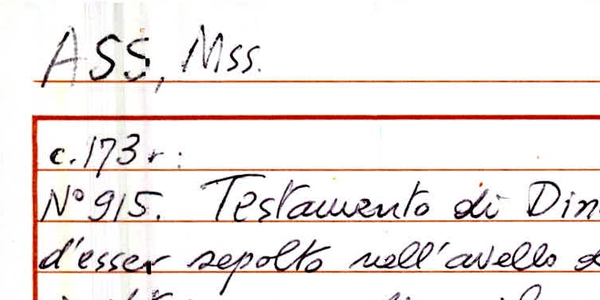 ASS, Mss.
c.173r:
N° 915. Testamento di Din
d'esser sepolto nell'avello